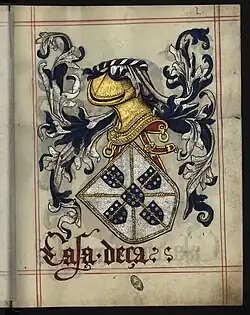 Casa · deça